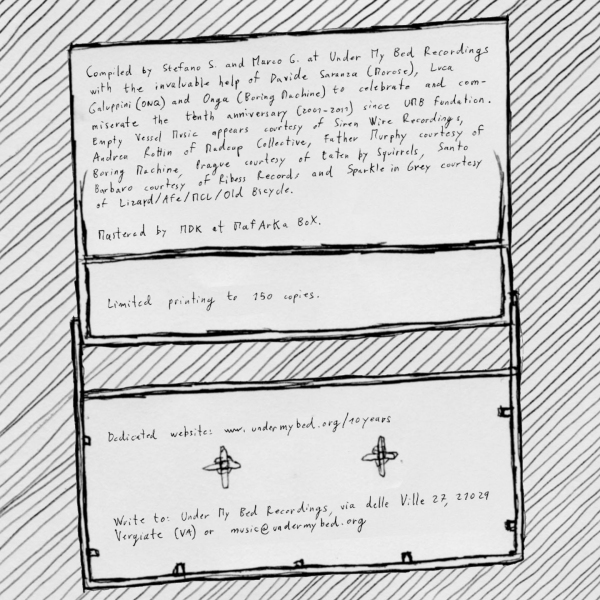 Compiled by Stefano S. and Marco G. at Under My Bed Recordings
with the invaluable help of Davide Saranza (Morose), Luca
Galuppini (ONQ) and Onga (Boring Machine) to celebrate and com-
miserate the tenth anniversary (2003-2013) since UMB fondation.
Empty Vessel Music appears courtesy of Siren Wire Recordings,
Andrea Rottin of Madcap Collective, Father Murphy courtesy of
Boring Machine, Prague courtesy of Eaten by Squirrels, Santo
Barbaro courtesy of Ribess Records and Sparkle in Grey courtesy
of Lizard/Afe/MCL/Old Bicycle.
Mastered by MDK at MafArKa BoX.
Limited printing to 150 copies.
Dedicated website: www.undermybed.org/10years
Write to: Under My Bed Recordings, via delle Ville 27, 21029
Vergiate (VA) or music@undermybed.org